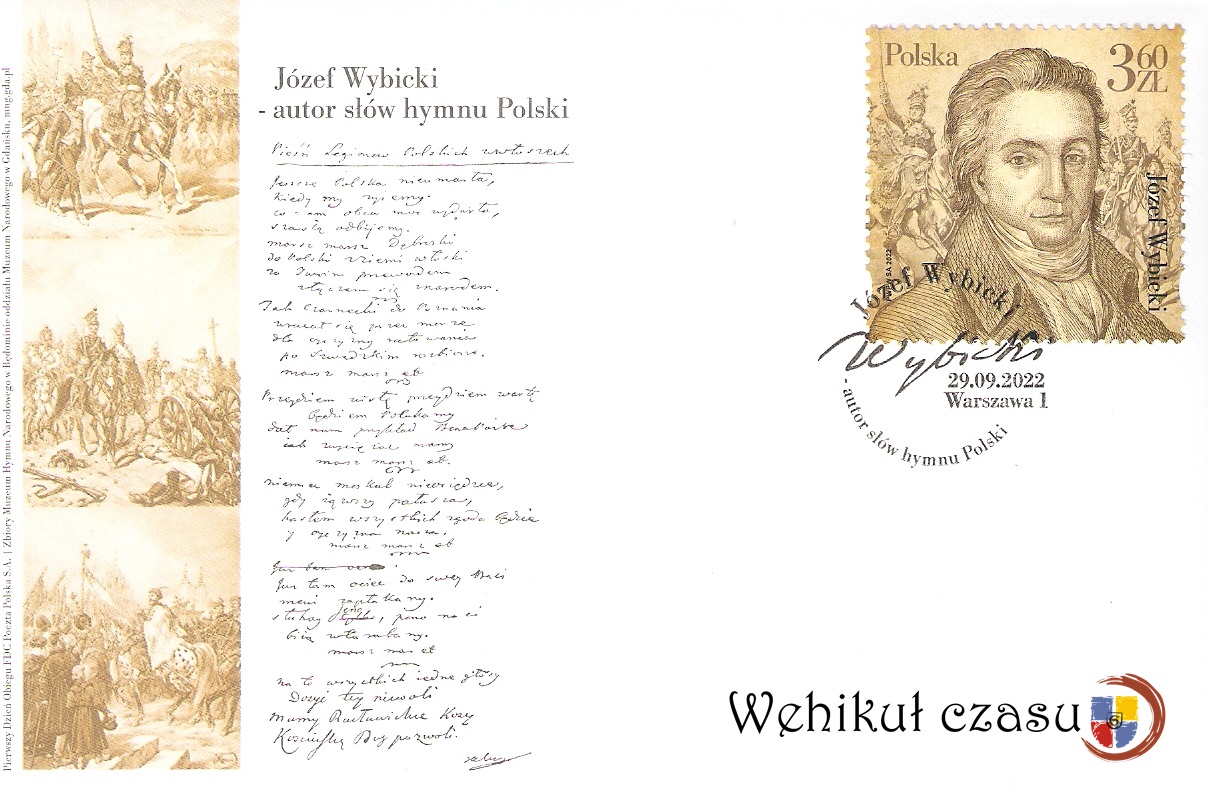 Józef Wybicki
- autor słów hymnu Polski
Pieśń Legionów Polskich we Włoszech
Jeszcze Polska nieumarła,
kiedy my żyjemy.
co nam obca moc wydarła,
szablą odbijemy.
marsz marsz Dąbrowski
do Polski z ziemi włoski
za Twoim przewodem
złączem się z narodem.
Jak Czarnecki do Poznania
wracał się przez morze
dla ojczyzny ratowania
po szwedzkim rozbiorze.
marsz marsz etc
Przejdziem Wisłę przejdziem Wartę
będziem Polakamy
dał nam przykład Bonaparte
jak zwyciężać mamy
marsz marsz etc.
niemiec moskal nieosiędzie,
gdy jąwszy pałasza,
hasłem wszystkich zgoda będzie
y ojczyzna nasza.
marsz marsz etc
Już tam
Już tam ociec do swey Basi
mówi zapłakany.
słuchay jeno, pono nasi
biią w tarabany.
marsz marsz etc
na to wszystkich iedne głosy
Dosyć tey niewoli
Mamy Racławickie Kosy
Kościuszkę Bóg pozwoli.
Pierwszy Dzień Obiegu FDC Poczta Polska S.A. | Zbiory Muzeum Hymnu Narodowego w Będominie oddziału Muzeum Narodowego w Gdańsku, mng.gda.pl
Polska
3 60 ZŁ
Józef Wybicki
SA 2022
Józef Wybicki
Wybicki
29.09.2022
Warszawa 1
- autor słów hymnu Polski
Wehikuł czasu
6